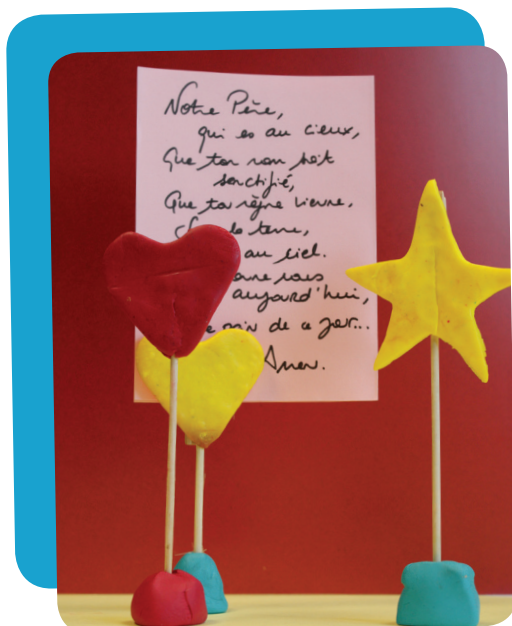 Notre Père,
qui es au cieux,
Que ton nom soit
sanctifié,
Que ton règne vienne,
la terre,
au ciel.
nous
aujourd'hui,
de ce jour...
Amen.